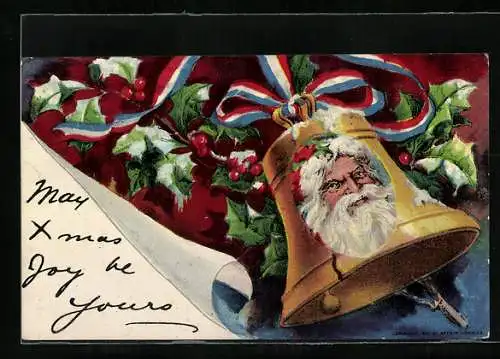 May
Xmas
Joy be
Yours